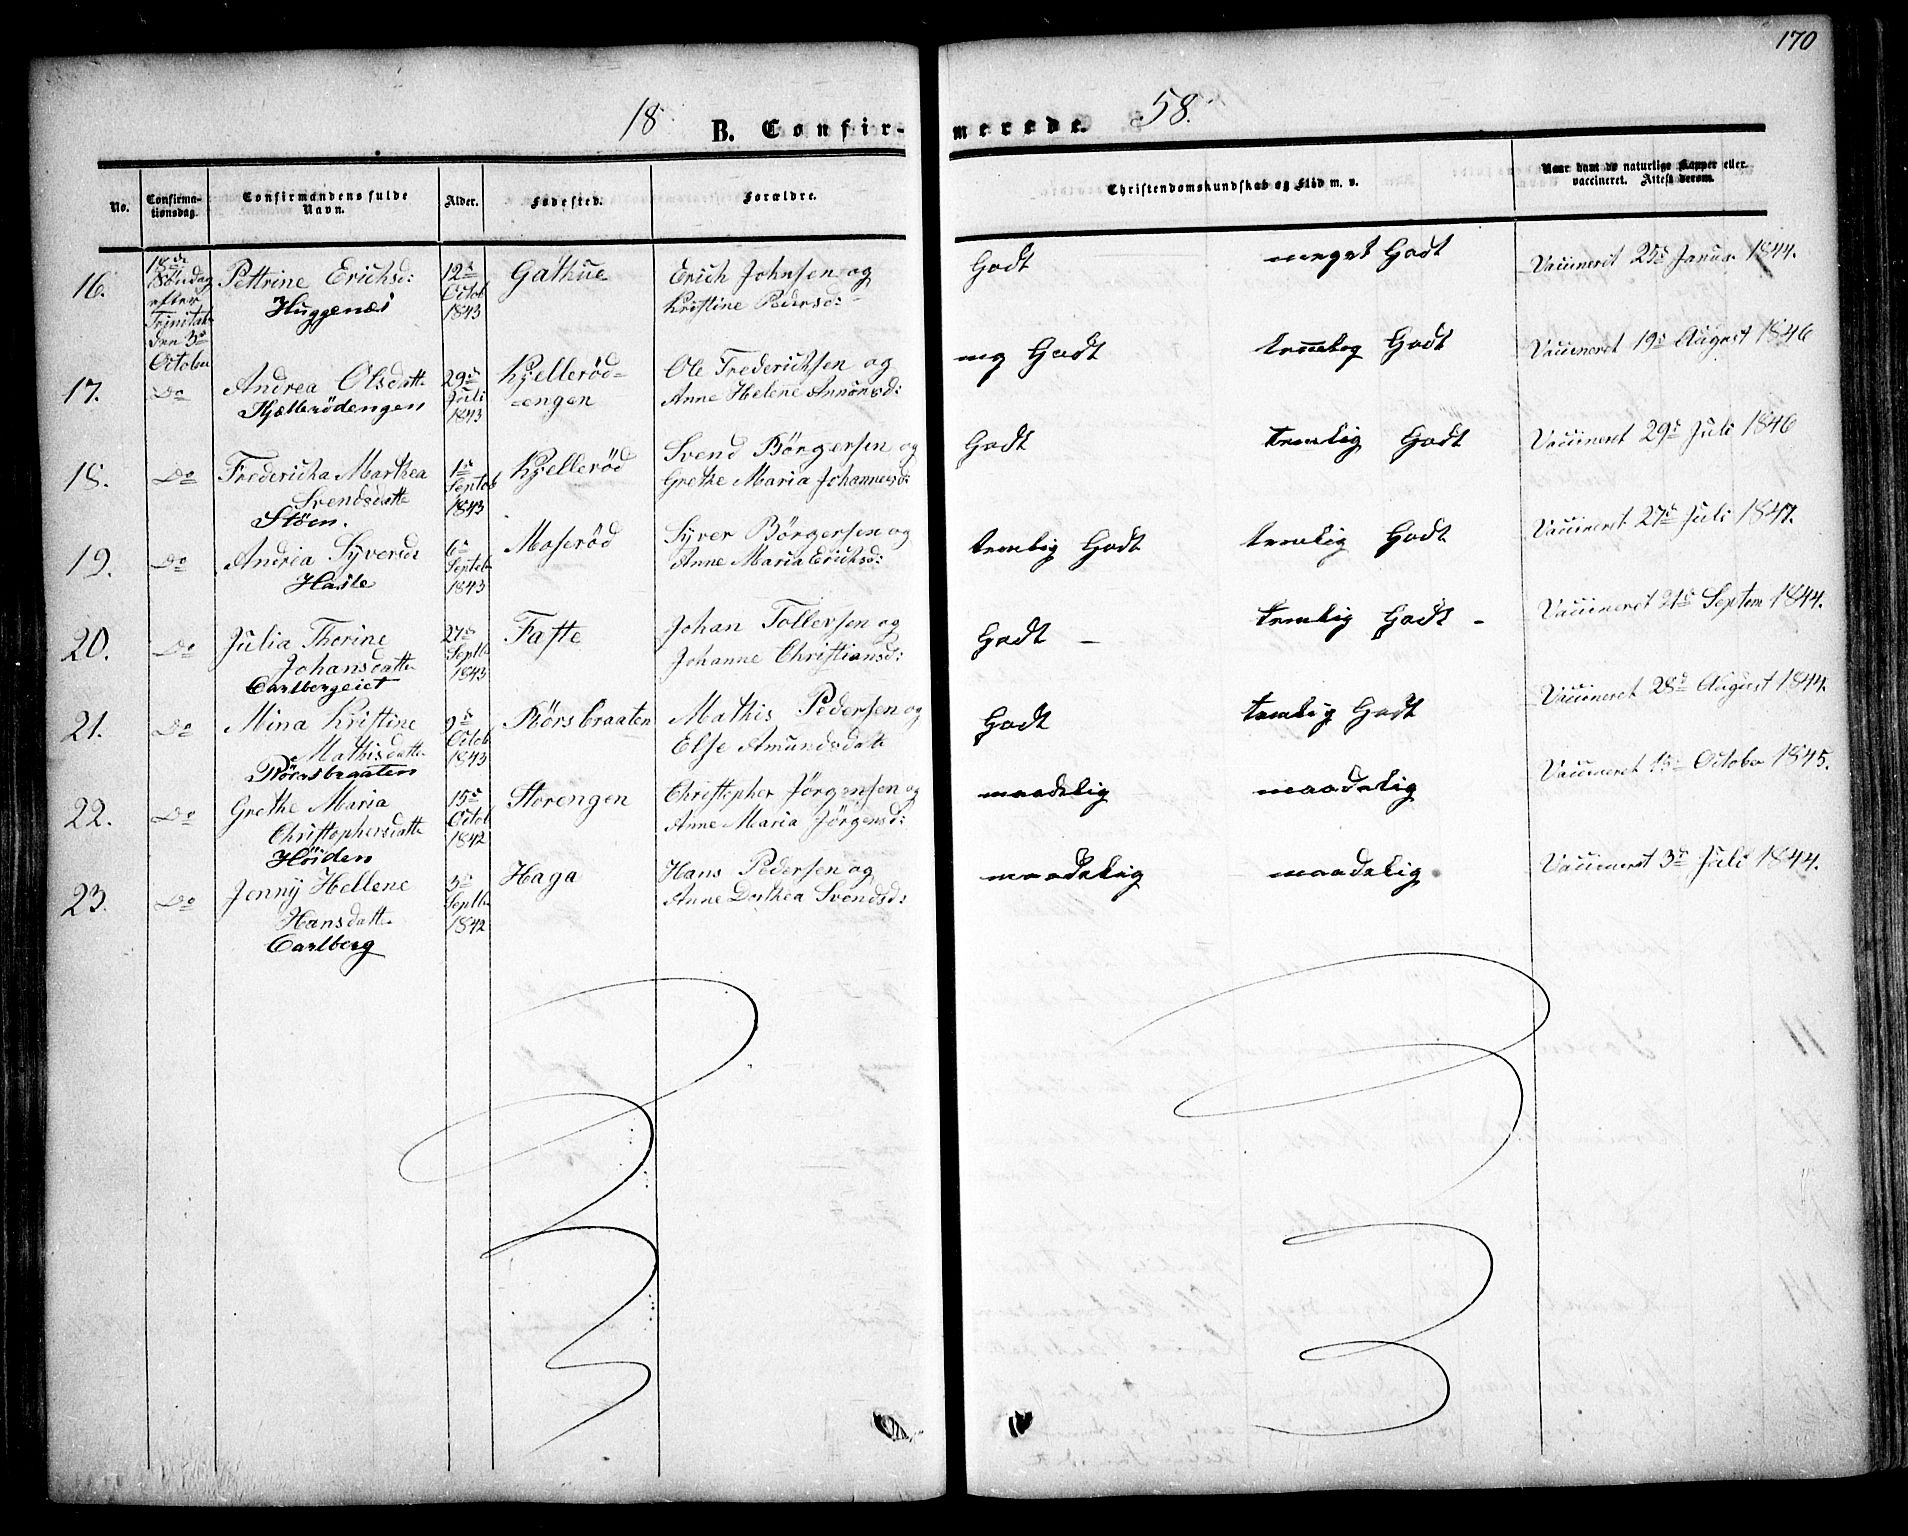 170
18 B. Confir- merede. 58.
No. Confirma-tionsdag. Confirmandens fulde Navn. Alder. Fødested. Forældre. Christendomskundskab og Flid m. v. Naar havt de naturlige Kopper eller vaccineret. Attest derom.
16. 18de Söndag efter Trinitat. den 3die October
Pettrine Erichsd:
Huggenæs
12te Octob 1843
Gathue
Erich Johnsen og
Kristine Pedersd:
Godt
meget Godt
Vaccineret 25de Januar 1844.
17. Do
Andrea Olsdatt
Kjællerödengen
29de Juli 1843
Kjellerød-
-engen
Ole Frederichsen og
Anne Helene
mg Godt
temelig Godt
Vaccineret 19de August 1846
18. Do
Fredericha Marthea
Svendsdatt
Støen.
1ste Septbr 1843
Kjelleröd
Svend Börgersen og
Grethe Maria Johannesd:
Godt
temlig Godt
Vaccineret 29de Juli 1846
19. Do
Andrea Syversd
Hasle
6te Septebr 1843
Moserød
Syver Börgersen og
Anne Maria Erichsd:
temlig Godt
temlig Godt
Vaccineret 27de Juli 1847.
20. Do
Julia Thorine
Johansdatt
Carlbergeiet
27de Septbr 1843
Faste
Johan Tollersen og
Johanne Christiansd:
Godt -
temlig Godt -
Vaccineret 21de Septem 1844.
21. Do
Mina Kristine
Mathisdatt
Rörsbraaten
2de Octob 1843
Rörsbraaten
Mathis Pedersen og
Else Amundsdatt
Godt
temlig Godt
Vaccineret 28de August 1844.
22. Do
Grethe Maria
Christophersdatt
Höiden
15de Octob 1842
Storengen
Christopher Jörgensen og
Anne Maria Jörgensd:
maadelig
maadelig
Vaccineret 13de October 1845.
23. Do
Jenny Hellene
Hansdatt
Carlberg
3de Septbr 1842
Haga
Hans Pedersen og
Anne Dorthea Svendsd:
maadelig
maadelig
Vaccineret 3die Juli 1844.